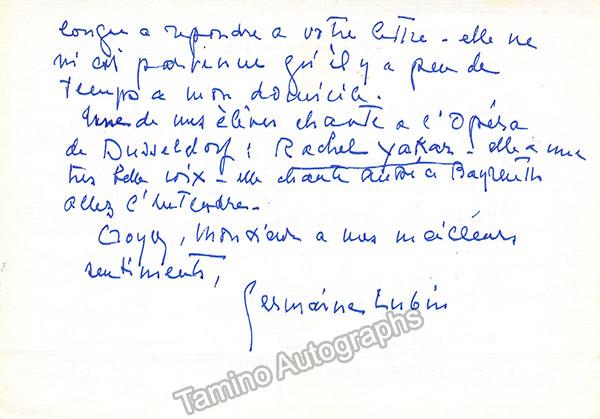 longue a repondre a votre lettre - elle ne
m'est parvenue qu'il y a peu de
temps a mon domicile.
Une de mes élèves chante a l'Opéra
de Dusseldorf : Rachel Yakar - elle a une
très belle voix - elle chante aussi a Bayreuth
allez l'entendre -
Croyez, Monsieur a mes meilleurs
sentiments,
Germaine Lubin
Tamino Autographs